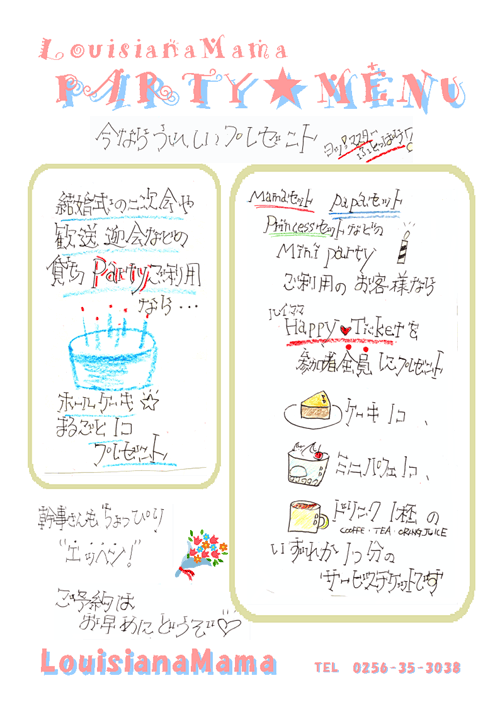 LouisianaMama
PARTY★MENU
今ならうれしいプレゼント
ヨッ!マスター
ふとっぱら!!
結婚式の二次会や
歓送迎会などの
貸切Partyご利用
なら…
ホールケーキ☆
まるごと1コ
プレゼント
幹事さんも ちょっぴり
"エッヘン!"
ご予約は
お早めにどうぞ♡
Mamaセット Papaセット
Princessセットなどの
Mini party
ご利用の お客様なら
ルイママ
Happy♥Ticketを
参加者全員にプレゼント
ケーキ1コ、
ミニパフェ1コ、
ドリンク1杯の
COFFE・TEA・ORANGJUICE
いずれか1つ分の
サービスチケットです
LouisianaMama
TEL 0256-35-3038